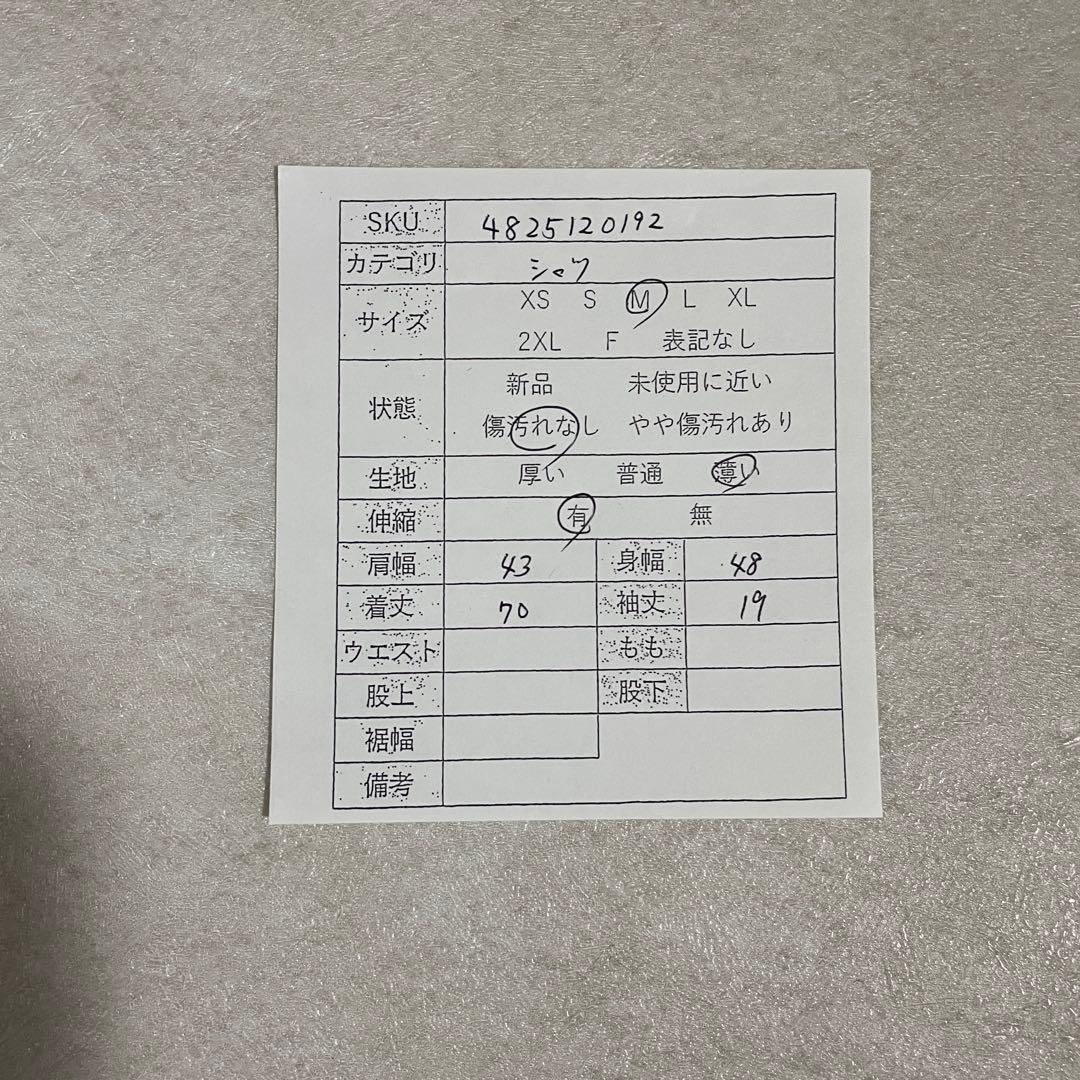 SKU 4825120192
カテゴリ シャツ
サイズ XS S M L XL
2XL F 表記なし
状態 新品 未使用に近い
傷汚れなし やや傷汚れあり
生地 厚い 普通 薄い
伸縮 有 無
肩幅 43 身幅 48
着丈 70 袖丈 19
ウエスト もも
股上 股下
裾幅
備考